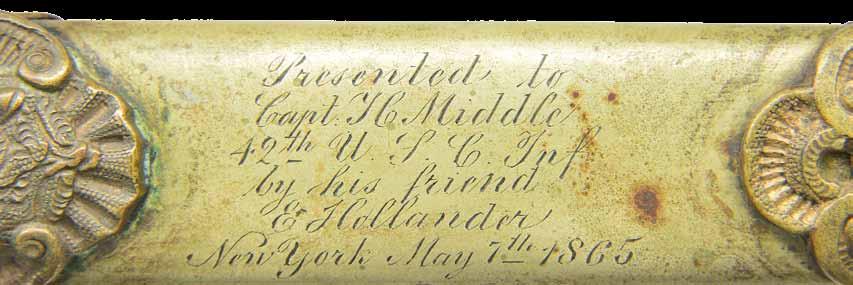 Presented to
Capt. H C Middle
42th U. S. C. Inf
by his friend
E Hollander
New York May 7th 1865